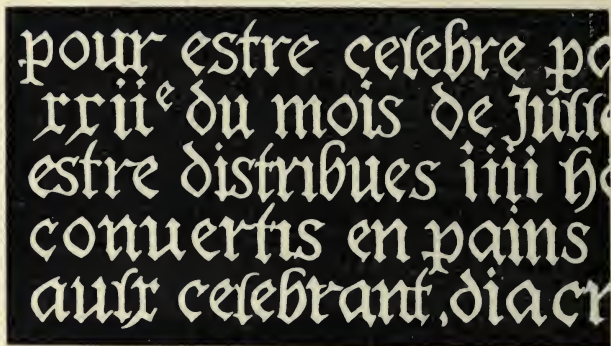 pour estre celebre po
xxiie du mois de Juille
estre distribues iiii he
conuertis en pains
aulx celebrant, diacr